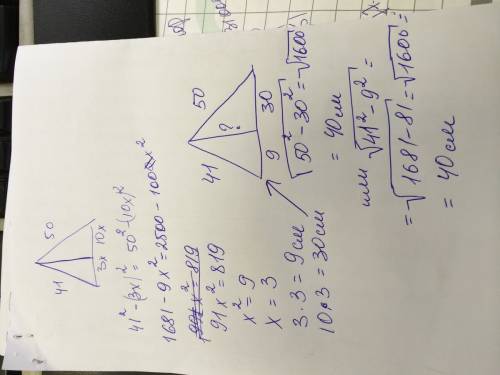 50
41
3x 10x
41² - (3x)² = 50² - (10x)²
1681 - 9x² = 2500 - 100x²
91x² = 819
91x² = 819
x² = 9
x = 3
3 · 3 = 9см
10 · 3 = 30см
50
41
?
9 30
√50² - 30² = √1600 =
= 40см
или √41² - 9² =
= √1681 - 81 = √1600 =
= 40см